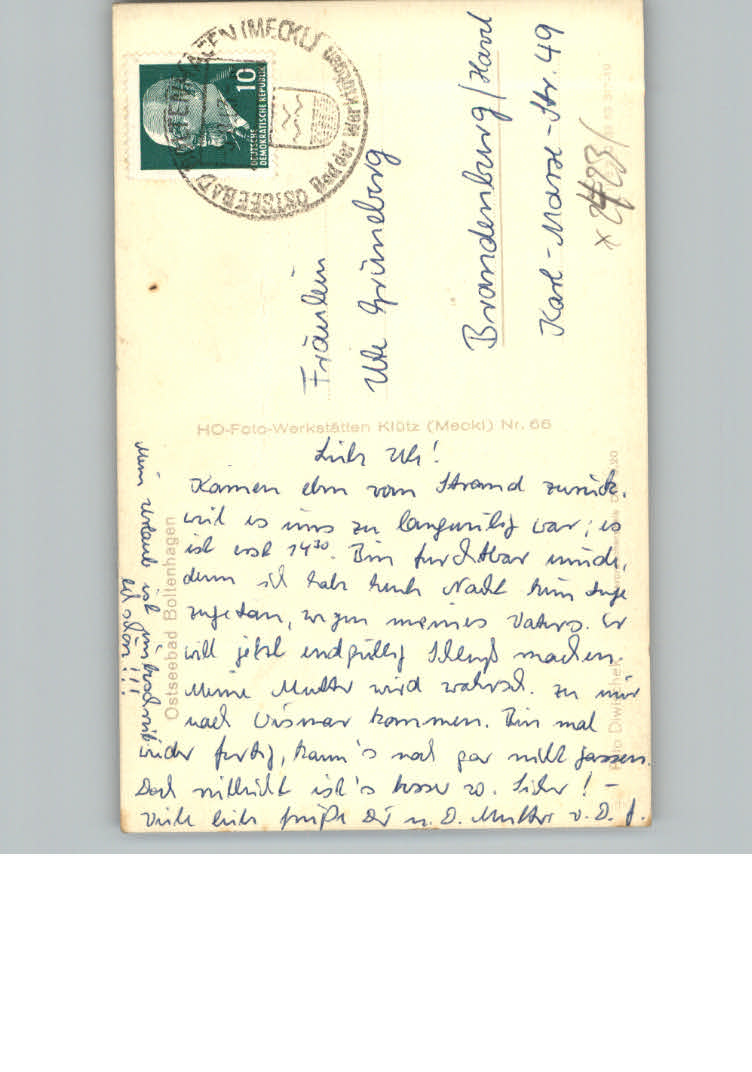 OSTSEEBAD BOLTENHAGEN (MECKL)
Bad der Werktätigen
10
DEUTSCHE
DEMOKRATISCHE REPUBLIK
Fräulein
Ute Grüneberg
Brandenburg/Havel
Karl-Marx-Str. 49
HO-Foto-Werkstätten Klütz (Meckl) Nr. 66
Ostseebad Boltenhagen
Liebe Ute!
Kamen eben vom Strand zurück,
weil es uns zu langweilig war; es
ist erst 14³⁰. Bin furchtbar müde,
denn ich habe heute Nacht kein Auge
zugetan, wegen meines Vaters. Er
will jetzt endgültig Schluß machen.
Meine Mutter wird wahrsch. zu mir
nach Wismar kommen. Bin mal
wieder fertig, kann's noch gar nicht fassen.
Doch vielleicht ist's besser so. Sicher! –
Viele liebe Grüße Dir u. D. Mutter v. D.
Mein Urlaub ist unbeschreib-
lich schön!!!